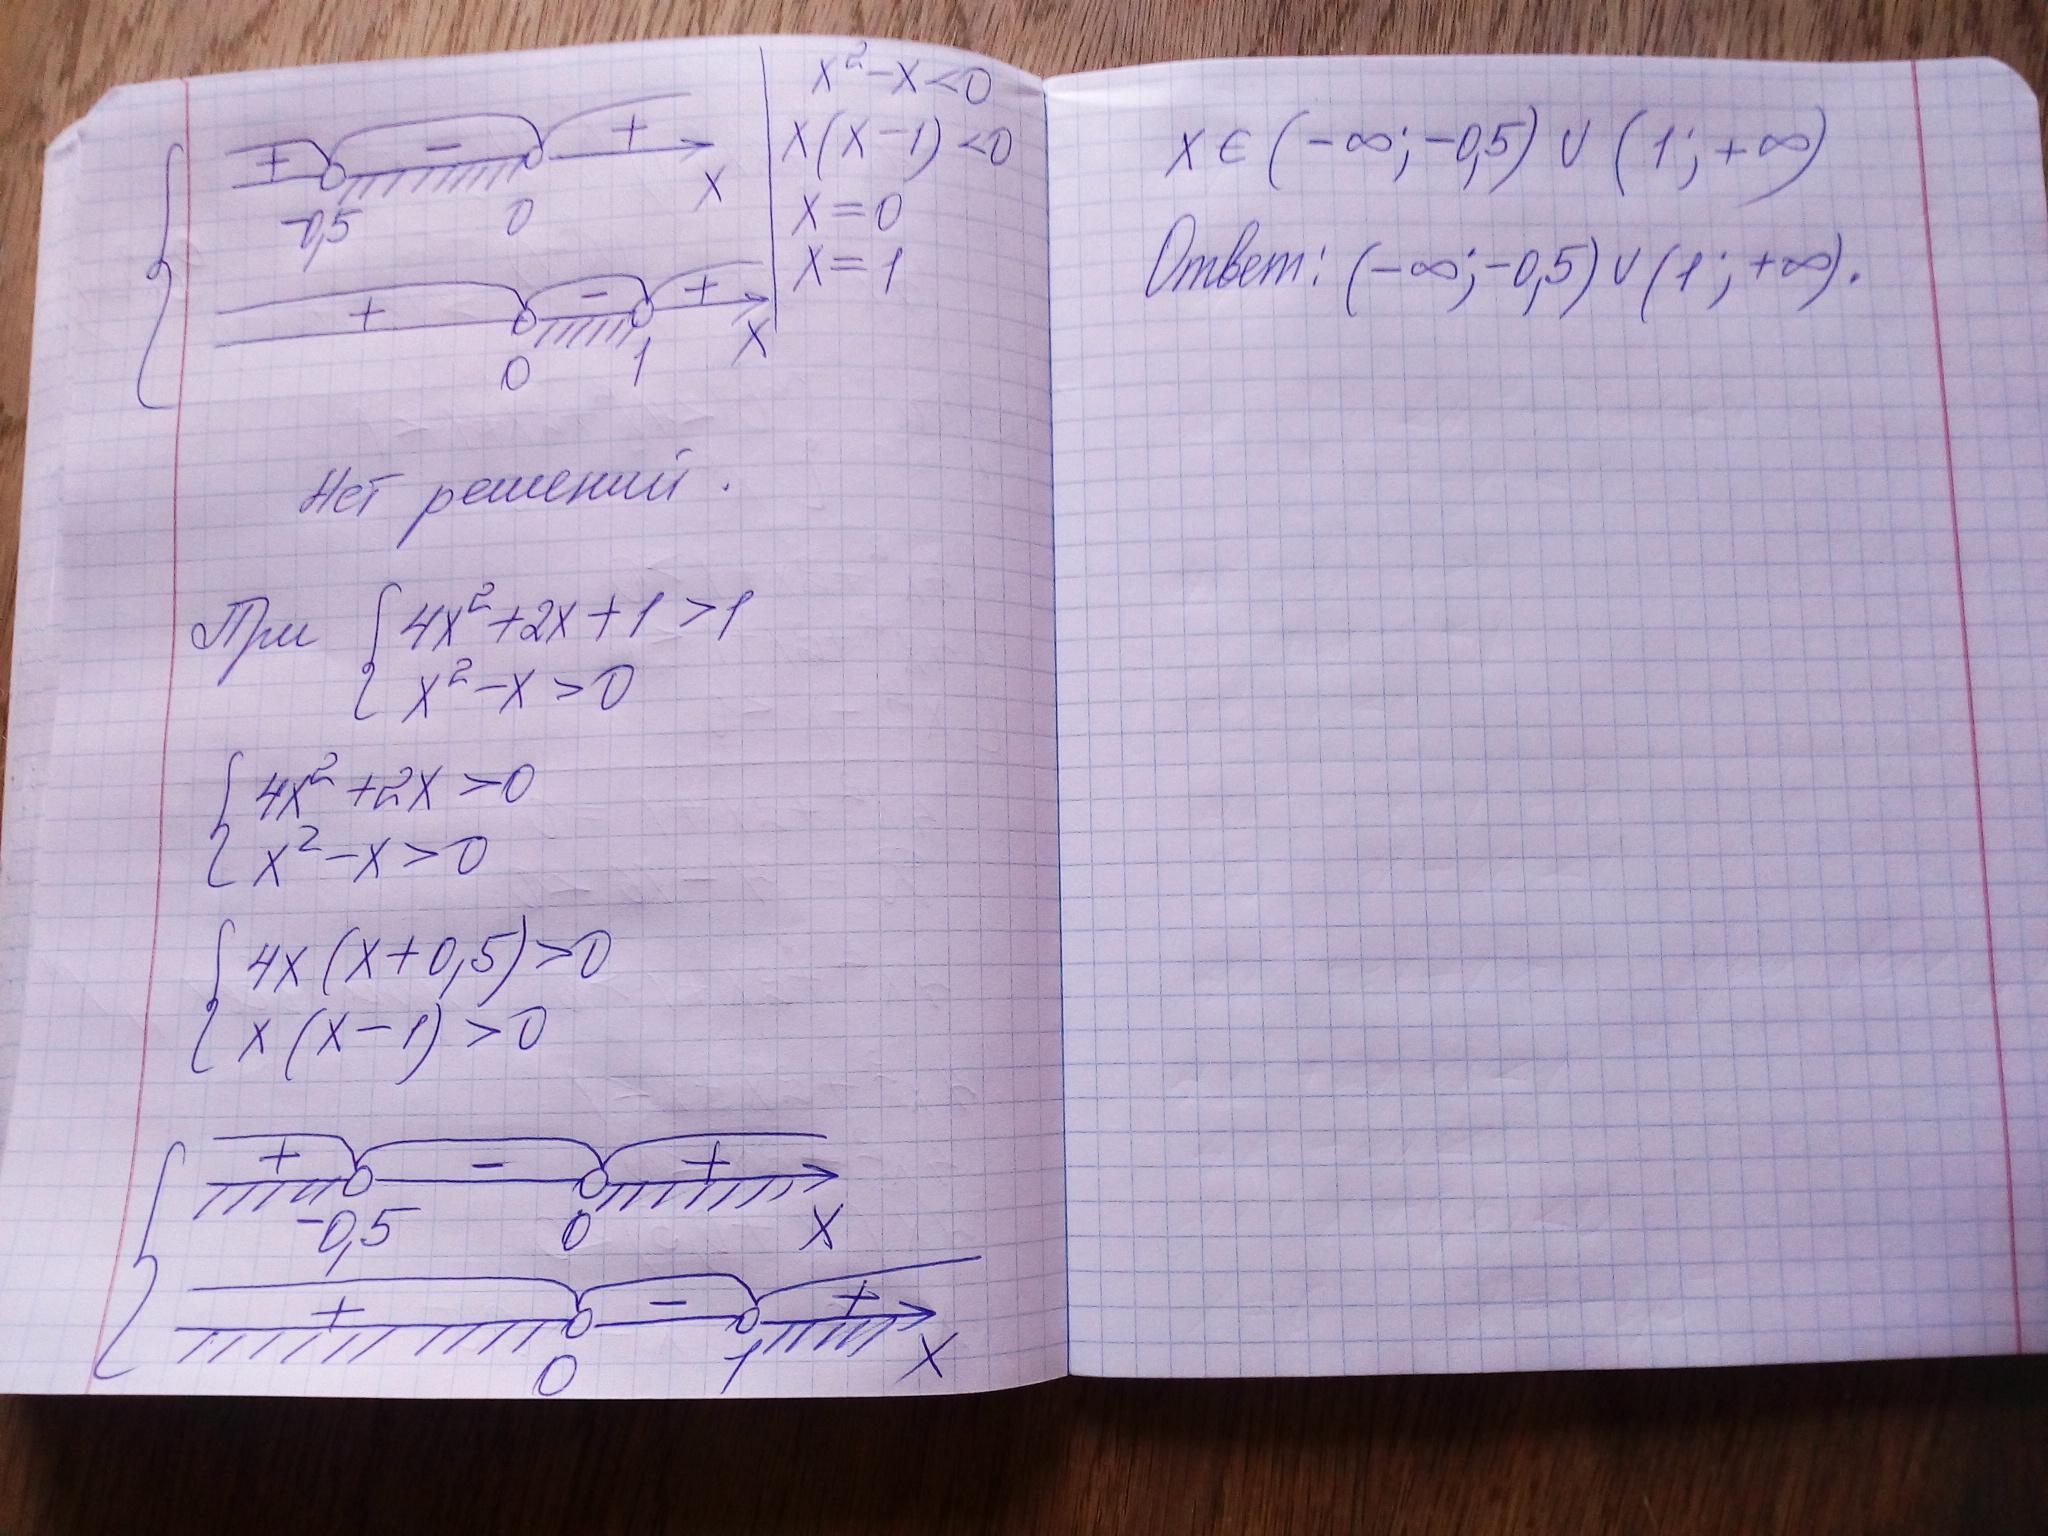 + - + x
-0,5 0
+ - + x
0 1
x² - x < 0
x(x - 1) < 0
x = 0
x = 1
Нет решений.
При { 4x² + 2x + 1 > 1
x² - x > 0
{ 4x² + 2x > 0
x² - x > 0
{ 4x(x + 0,5) > 0
x(x - 1) > 0
+ - +
-0,5 0 x
+ - +
0 1 x
x ∈ (-∞; -0,5) ∪ (1; +∞)
Ответ: (-∞; -0,5) ∪ (1; +∞).